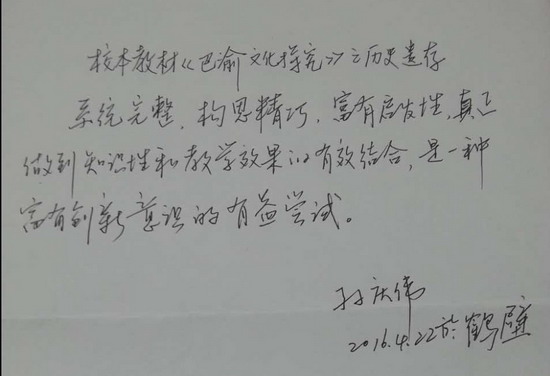 校本教材《巴渝文化探究》之历史遗存
系统完整，构思精巧，富有启发性，真正
做到知识性和教学效果的有效结合，是一种
富有创新意识的有益尝试。
孙庆伟
2016.4.22於鹤壁